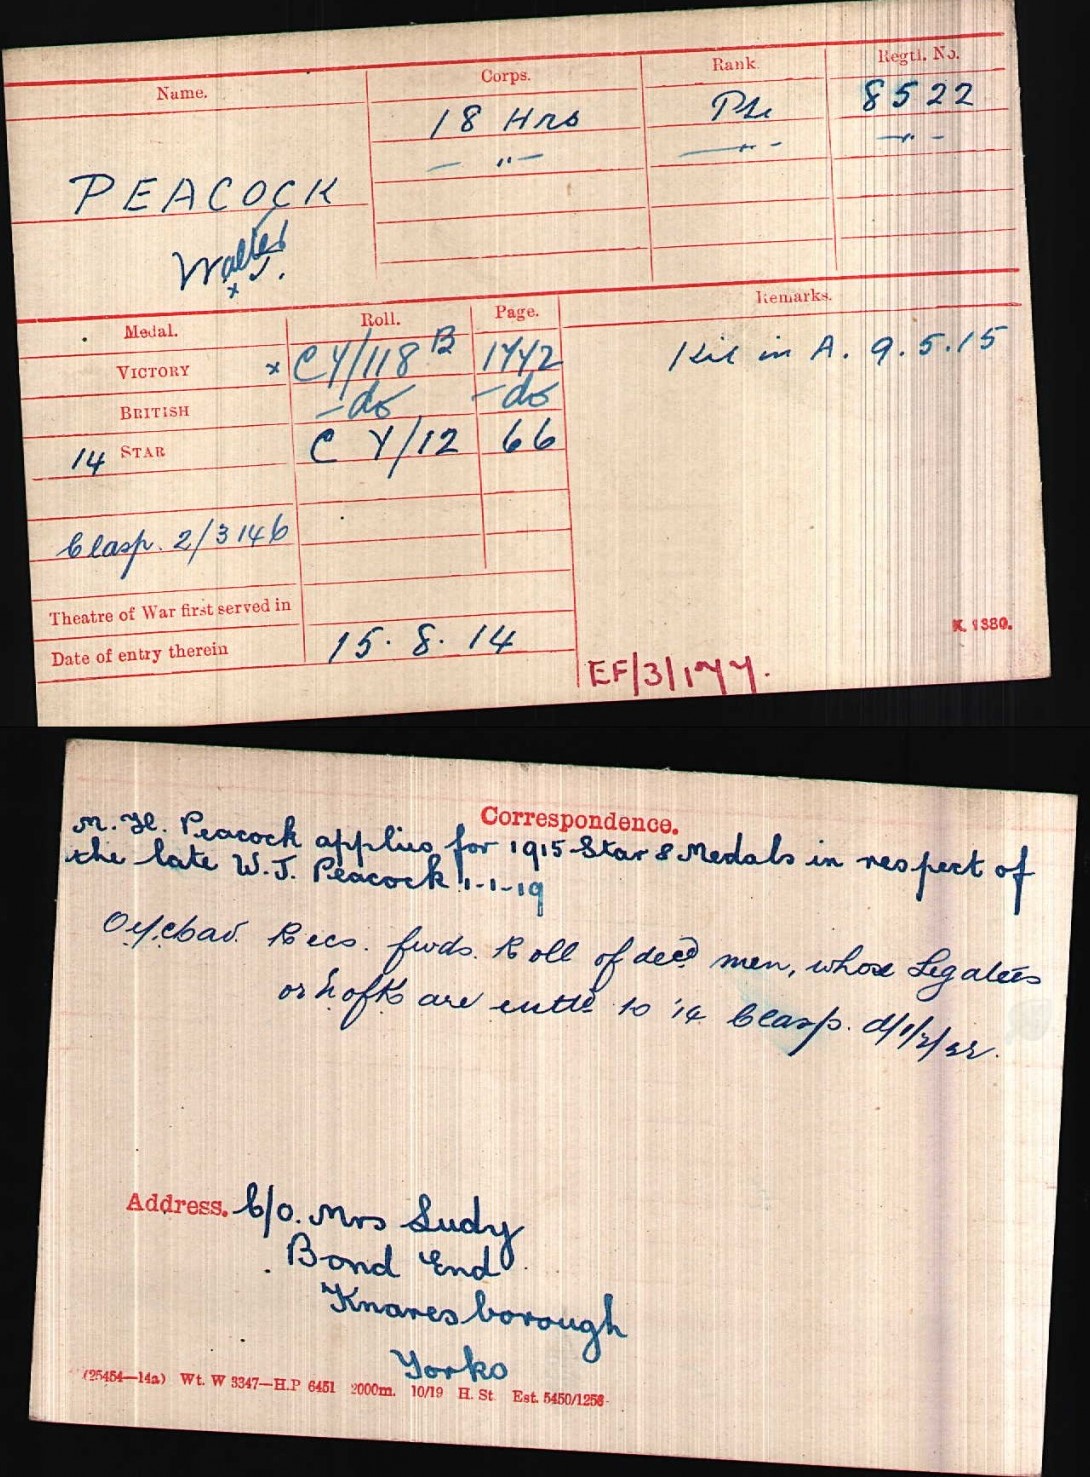 Name.
Corps.
Rank.
Regtl. No.
PEACOCK
Walter J.
x
18 Hrs
Pte
8522
— " —
— " —
— " —
Medal.
Roll.
Page.
Remarks.
VICTORY
x CY/118 B
1YY2
Kil in A. 9.5.15
BRITISH
-do
-do
14 STAR
CY/12
66
Clasp. 2/3146
Theatre of War first served in
Date of entry therein
15. 8. 14
K. 1380.
EF/3/1YY.
Correspondence.
M. H. Peacock applies for 1915 Star & Medals in respect of
the late W.J. Peacock 1-1-19
O i/c Cav. Recs. fwds. Roll of decd men, whose Legatees
or N of K are entld to '14 Clasp. d/1/2/22.
Address. C/o. Mrs Ludy
Bond End
Knaresborough
Yorks
(25454—14a) Wt. W 3347—H.P 6451 2000m. 10/19 H. St. Est. 5450/1256